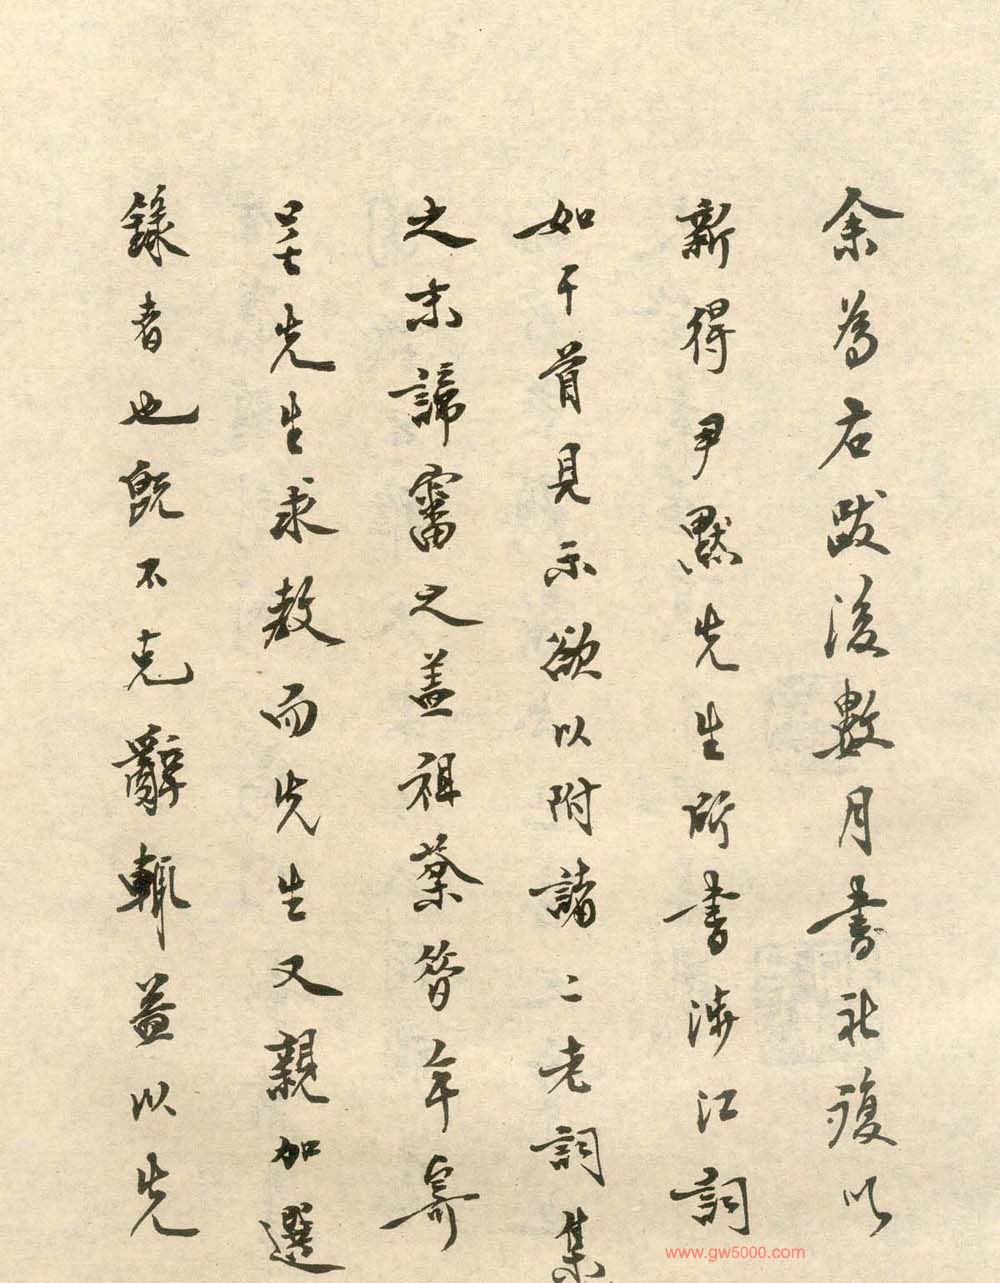 余為右跋後數月書社復以
新得尹默先生所書涉江詞
如干首見示欲以附諸二老詞集
之末諦審之蓋祖棻曾年寄
呈先生求教而先生又親加選
錄者也既不克辭輒益以先
www.gw5000.com